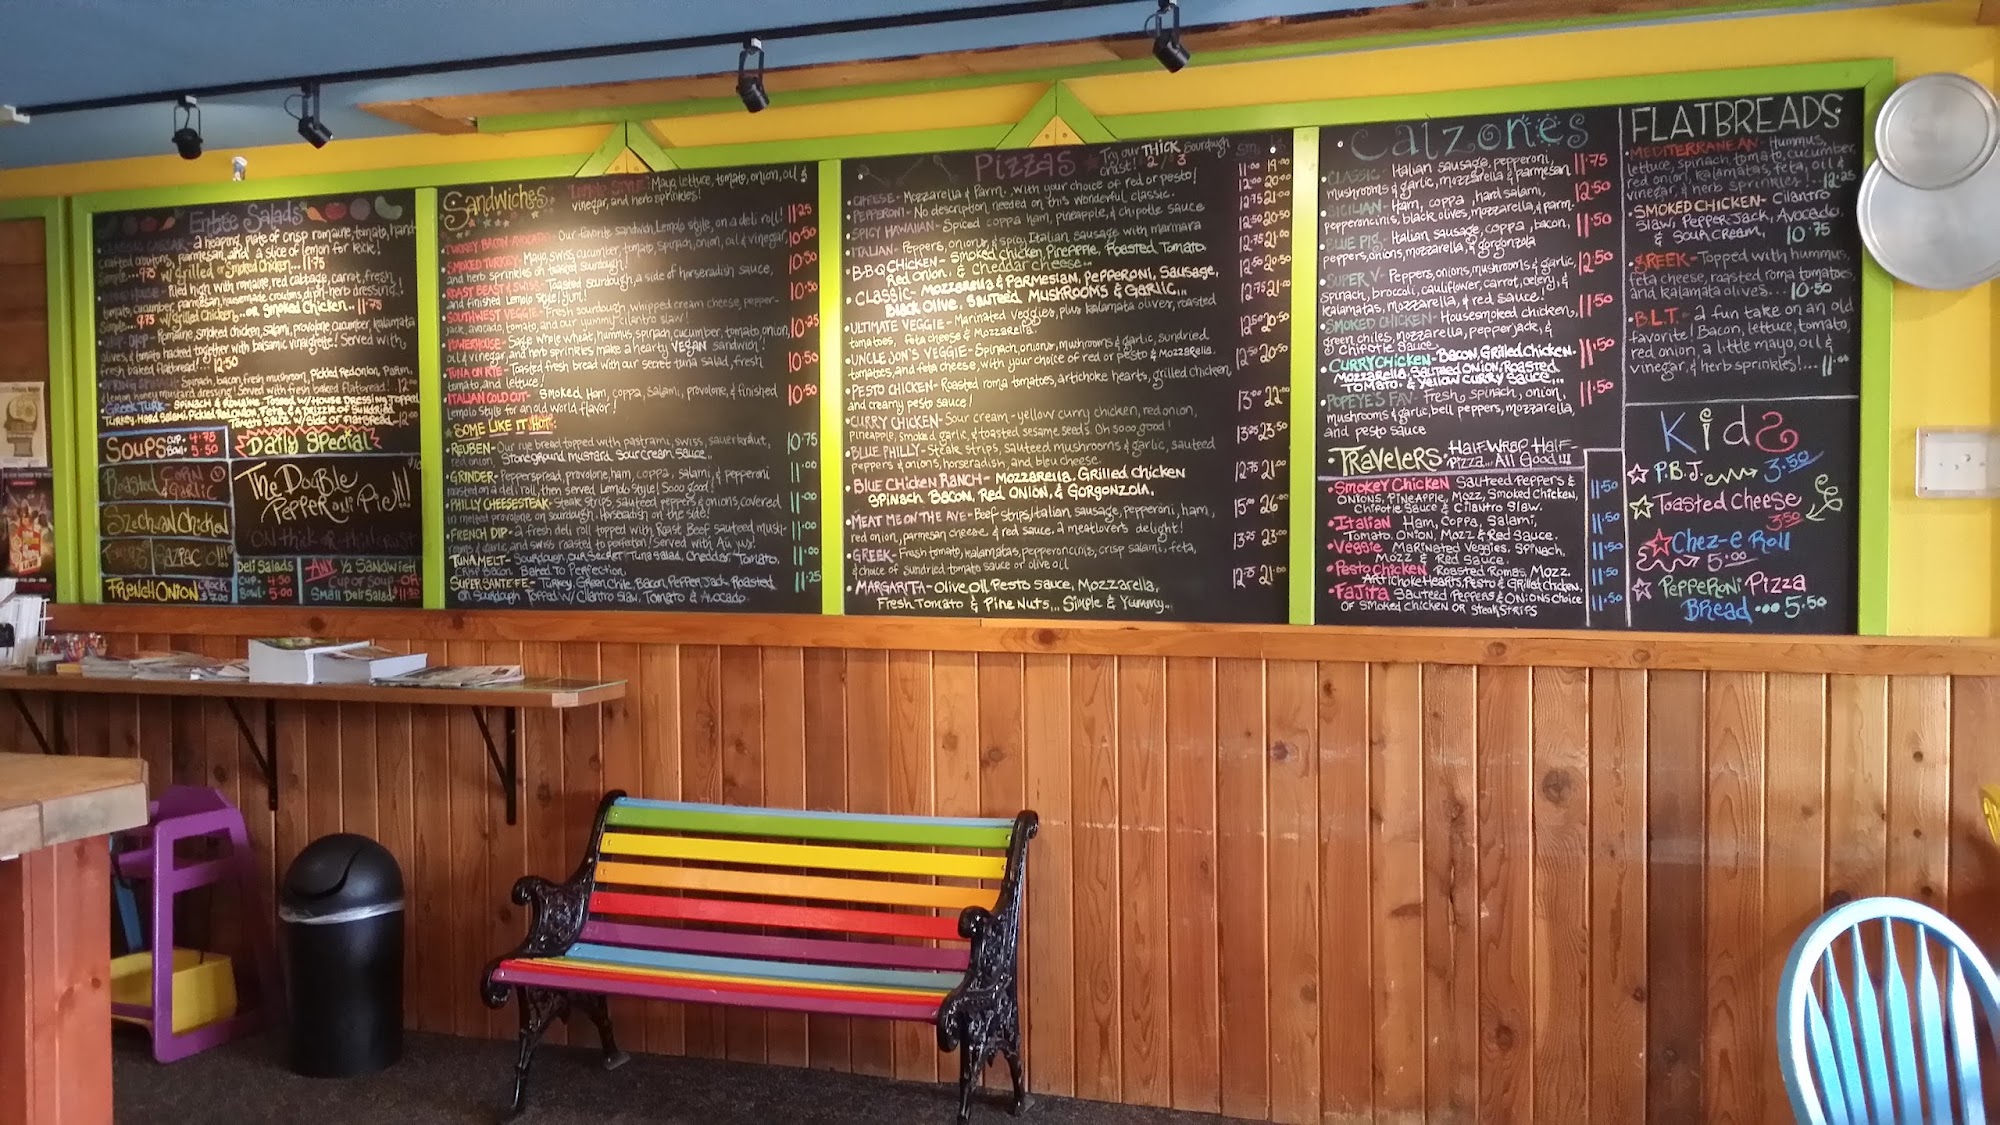 Entrée Salads
CLASSIC CAESAR - a heaping plate of crisp romaine, tomato, hand-
crafted croutons, parmesan, and a slice of lemon for kick!
Simple... 9.75 w/ grilled or smoked chicken... 11.75
HOUSE - Piled high with romaine, red cabbage, carrot, fresh
tomato, cucumber, parmesan, housemade croutons, herb dressing!
Simple... 9.75 w/ grilled chicken... or smoked chicken... 11.75
CHOP CHOP - Romaine, smoked chicken, salami, provolone, cucumber, kalamata
olives, & tomato hacked together with balsamic vinaigrette! Served with
fresh baked flatbread! 12.50
SPRING SPINACH - Spinach, bacon, fresh mushroom, Pickled Red Onion, Parm,
& lemon honey mustard dressing! Served with fresh baked flatbread! 12.00
GREEK TURK - Spinach & Romaine Tossed w/ House Dressing Topped
Turkey, Hard Salami, Pickled Red Onion, Feta, & a Drizzle of Sundried
Tomato Sauce w/ Side of Flatbread
SOUPS CUP. 4.75
BOWL. 5.50
Daily Special
Roasted Corn
& Garlic
Szechuan Chicken
GAZPACHO!!
FRENCH ONION 7.00
The Double
PEPPERONI PIE!!!
on thick or thin crust
Deli Salads
CUP. 4.50
BOWL. 5.00
ANY 1/2 SANDWICH
CUP OF SOUP - OR -
SMALL DELI SALAD
Sandwiches
"Lemolo STYLE": Mayo, lettuce, tomato, onion, oil &
vinegar, and herb sprinkles!
TURKEY BACON AVOCADO - Our favorite sandwich, Lemolo style, on a deli roll! 11.25
SMOKED TURKEY - Mayo, swiss, cucumber, tomato, spinach, onion, oil & vinegar, 10.50
and herb sprinkles on toasted sourdough!
ROAST BEEF & SWISS - Toasted sourdough, a side of horseradish sauce, 10.50
and finished Lemolo Style! Yum!
SOUTHWEST VEGGIE - Fresh sourdough, whipped cream cheese, pepper- 10.50
jack, avocado, tomato, and our yummy cilantro slaw!
POWERHOUSE - Sage whole wheat, hummus, spinach, cucumber, tomato, onion, 10.25
oil & vinegar, and herb sprinkles make a hearty VEGAN sandwich!
TUNA ON RYE - Toasted fresh bread with our secret tuna salad, fresh 10.50
tomato, and lettuce!
ITALIAN COLD CUT - Smoked Ham, coppa, salami, provolone, & finished 10.50
Lemolo Style for an old world flavor!
SOME LIKE IT HOT:
REUBEN - Our rye bread topped with pastrami, swiss, sauerkraut, 10.75
red onion, Stoneground Mustard, Sour Cream Sauce...
GRINDER - Pepperspread, provolone, ham, coppa, salami, & pepperoni 11.00
roasted on a deli roll, then served Lemolo Style! Sooo good!
PHILLY CHEESESTEAK - Steak strips, sauteed peppers & onions, covered 11.00
in melted provolone on sourdough. Horseradish on the side!
FRENCH DIP - A fresh deli roll topped with Roast Beef, sauteed mush- 11.00
rooms & garlic, and swiss roasted to perfection! Served with Au Jus!
TUNA MELT - Sourdough, our Secret Tuna Salad, Cheddar, Tomato, 11.00
Crisp Bacon Baked To Perfection
SUPER SANTE FE - Turkey, Green Chile, Bacon, Pepper Jack, Roasted 11.25
on Sourdough Topped w/ Cilantro Slaw, Tomato & Avocado
Pizzas
Try our THICK Sourdough
crust! 2 / 3
sm.
CHEESE - Mozzarella & Parm. with your choice of red or pesto! 11.00 19.00
PEPPERONI - No description needed on this wonderful classic. 12.00 20.00
SPICY HAWAIIAN - Spiced coppa ham, pineapple, & chipotle sauce 12.75 21.00
ITALIAN - Peppers, onions & spicy Italian sausage with marinara 12.50 20.50
B-B-Q CHICKEN - Smoked chicken, Pineapple, Roasted Tomato, 12.75 21.00
Red Onion, & Cheddar Cheese...
CLASSIC - Mozzarella & Parmesan, Pepperoni, Sausage, 12.50 20.50
Black Olive, Sauteed Mushrooms & Garlic...
ULTIMATE VEGGIE - Marinated Veggies, plus kalamata olives, roasted 12.75 21.00
tomatoes, feta cheese & Mozzarella.
UNCLE JON'S VEGGIE - Spinach, onions, mushrooms & garlic, sundried 12.50 20.50
tomatoes, and feta cheese, with your choice of red or pesto & Mozzarella.
PESTO CHICKEN - Roasted roma tomatoes, artichoke hearts, grilled chicken, 12.50 20.50
and creamy pesto sauce!
CURRY CHICKEN - Sour cream - yellow curry chicken, red onion, 13.00 22.00
pineapple, smoked garlic, & toasted sesame seeds. Oh sooo good!
BLUE PHILLY - Steak strips, sauteed mushrooms & garlic, sauteed 13.25 23.50
peppers & onions, horseradish, and bleu cheese.
BLUE CHICKEN RANCH - Mozzarella, Grilled Chicken 12.75 21.00
Spinach, Bacon, Red Onion, & Gorgonzola.
MEAT ME ON THE AVE - Beef strips, Italian sausage, pepperoni, ham, 15.00 26.00
red onion, parmesan cheese & red sauce. A meatlover's delight!
GREEK - Fresh tomato, kalamatas, pepperoncinis, crisp salami, feta, 13.25 23.00
& choice of sundried tomato sauce or olive oil
MARGARITA - Olive Oil Pesto Sauce, Mozzarella, 12.75 21.00
Fresh Tomato & Pine Nuts... Simple & Yummy...
Calzones
CLASSIC - Italian sausage, pepperoni, 11.75
mushrooms & garlic, mozzarella & parmesan
SICILIAN - Ham, coppa, hard salami, 12.50
pepperoncinis, black olives, mozzarella, & parm.
BLUE PIG - Italian sausage, coppa, bacon, 11.50
peppers, onions, mozzarella, & gorgonzola
SUPER V - Peppers, onions, mushrooms & garlic, 12.50
spinach, broccoli, cauliflower, carrot, celery, &
kalamatas, mozzarella, & red sauce!
SMOKED CHICKEN - House smoked chicken, 11.50
green chiles, mozzarella, pepperjack, &
Chipotle Sauce
CURRY CHICKEN - Bacon, Grilled Chicken. 11.50
Mozzarella, Sauteed Onion, Roasted
Tomato, & Yellow Curry Sauce...
POPEYES FAV. - Fresh spinach, onion, 11.50
mushrooms & garlic, bell peppers, mozzarella,
and pesto sauce
TRAVELERS. HALF WRAP HALF
Pizza... All Good!!!
SMOKEY CHICKEN Sauteed Peppers & 11.50
Onions, Pineapple, Mozz, Smoked Chicken,
Chipotle Sauce & Cilantro Slaw.
Italian Ham, Coppa, Salami, 11.50
Tomato, Onion, Mozz & Red Sauce.
Veggie Marinated Veggies, Spinach, 11.50
Mozz & Red Sauce.
Pesto Chicken Roasted Romas, Mozz. 11.50
Artichoke Hearts, Pesto & Grilled Chicken,
FAJITA Sauteed Peppers & Onions Choice 11.50
of Smoked Chicken or Steak Strips
FLATBREADS
MEDITERRANEAN - Hummus,
lettuce, spinach, tomato, cucumber,
red onion, kalamatas, feta, oil &
vinegar, & herb sprinkles! 12.25
SMOKED CHICKEN - Cilantro
Slaw, Pepper-Jack, Avocado
& Sour Cream, 10.75
GREEK - Topped with hummus,
feta cheese, roasted roma tomatoes,
and kalamata olives.... 10.50
B.L.T. - a fun take on an old
favorite! Bacon, lettuce, tomato,
red onion, a little mayo, oil &
vinegar, & herb sprinkles!... 11.00
Kids
P.B.J. 3.50
Toasted Cheese
3.50
Chez-e Roll
5.00
Pepperoni Pizza
Bread ... 5.50